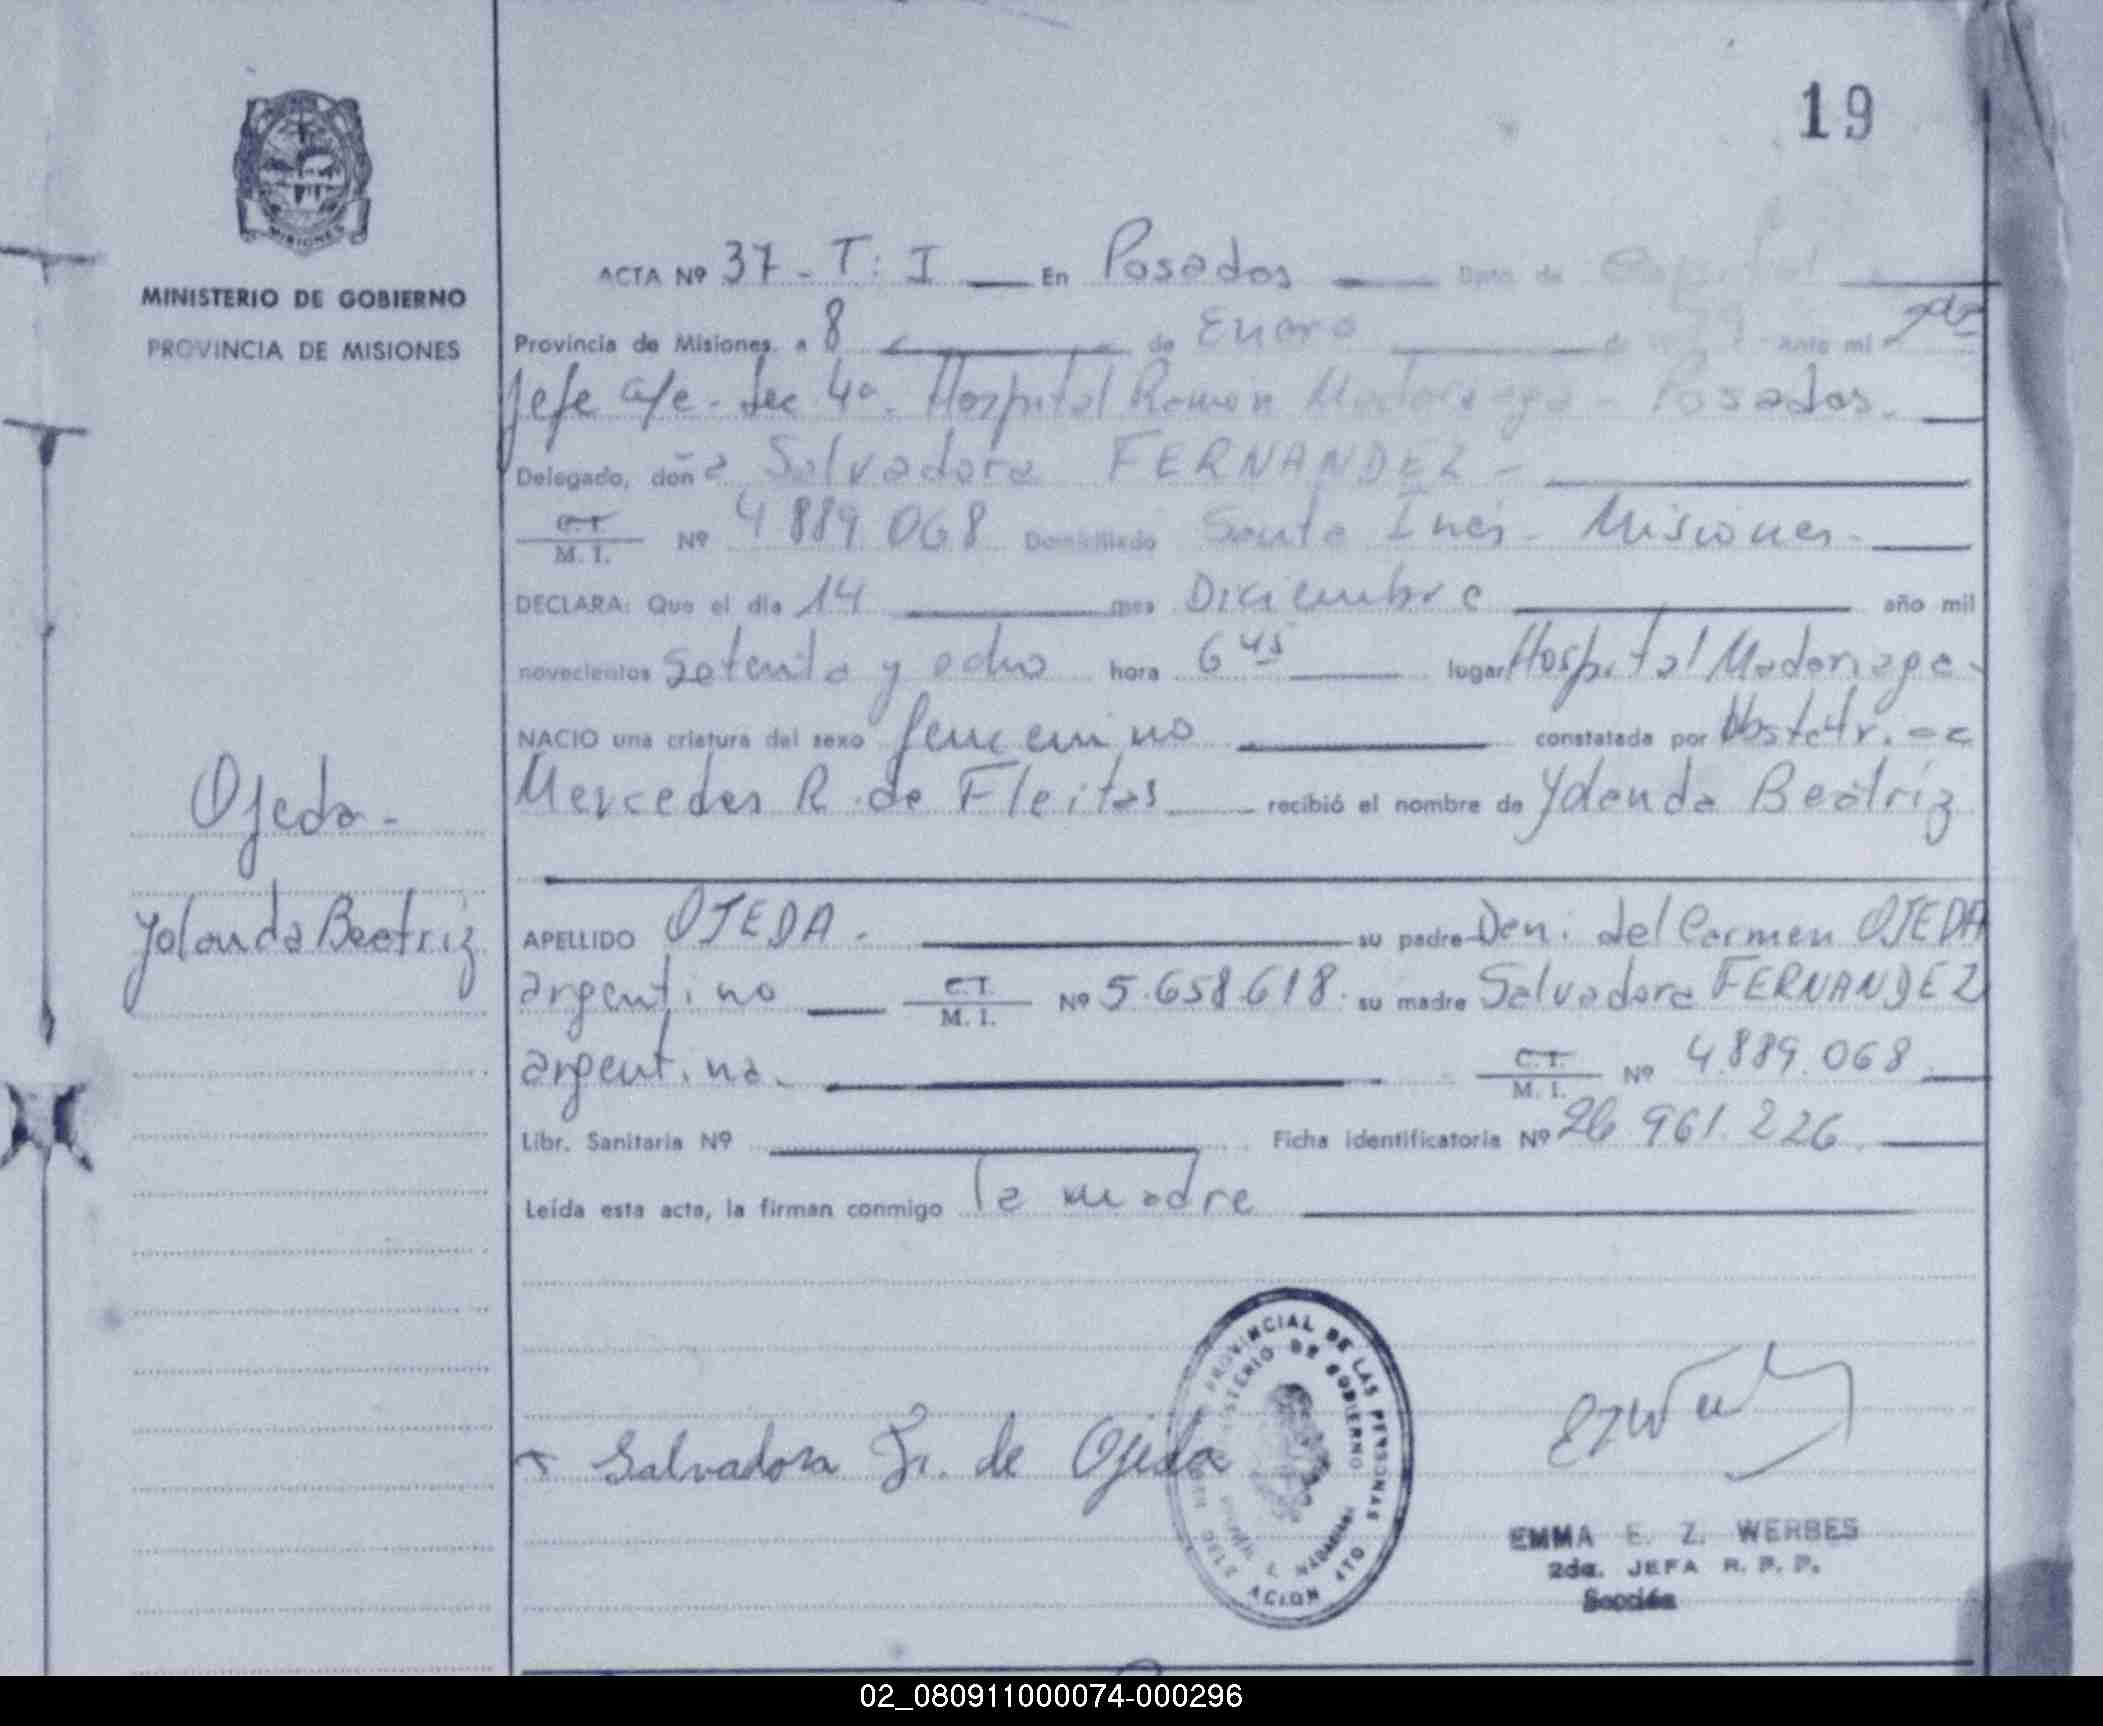 19
MISIONES
MINISTERIO DE GOBIERNO
PROVINCIA DE MISIONES
Ojeda -
Yolanda Beatriz
ACTA Nº 37 - T: I — En Posadas — Dpto de Capital
Provincia de Misiones, a 8 — de Enero — de 79 ante mi 2da
Jefe a/c - Sec 4ª. Hospital Ramón Madariaga - Posadas.
Delegado, doña Salvadora FERNANDEZ -
C.I. M. I. Nº 4889.068 Domiciliado Santa Inés - Misiones -
DECLARA: Que el día 14 — mes Diciembre — año mil
novecientos setenta y ocho hora 6 45 — lugar Hospital Madariaga -
NACIO una criatura del sexo femenino — constatada por Obstetr.
Mercedes R. de Fleitas — recibió el nombre de Yolanda Beatriz
APELLIDO OJEDA. — su padre Deni. del Carmen OJEDA
argentino — C.I. M. I. Nº 5.658.618. su madre Salvadora FERNANDEZ
argentina. — C.I. M. I. Nº 4.889.068
Libr. Sanitaria Nº — Ficha identificatoria Nº 26 961.226
Leída esta acta, la firman conmigo la madre
Salvadora F. de Ojeda
PROVINCIAL DE LAS PERSONAS
MINISTERIO DE GOBIERNO
EMMA E. Z. WERBES
2da. JEFA R. P. P.
Sección
02_080911000074-000296